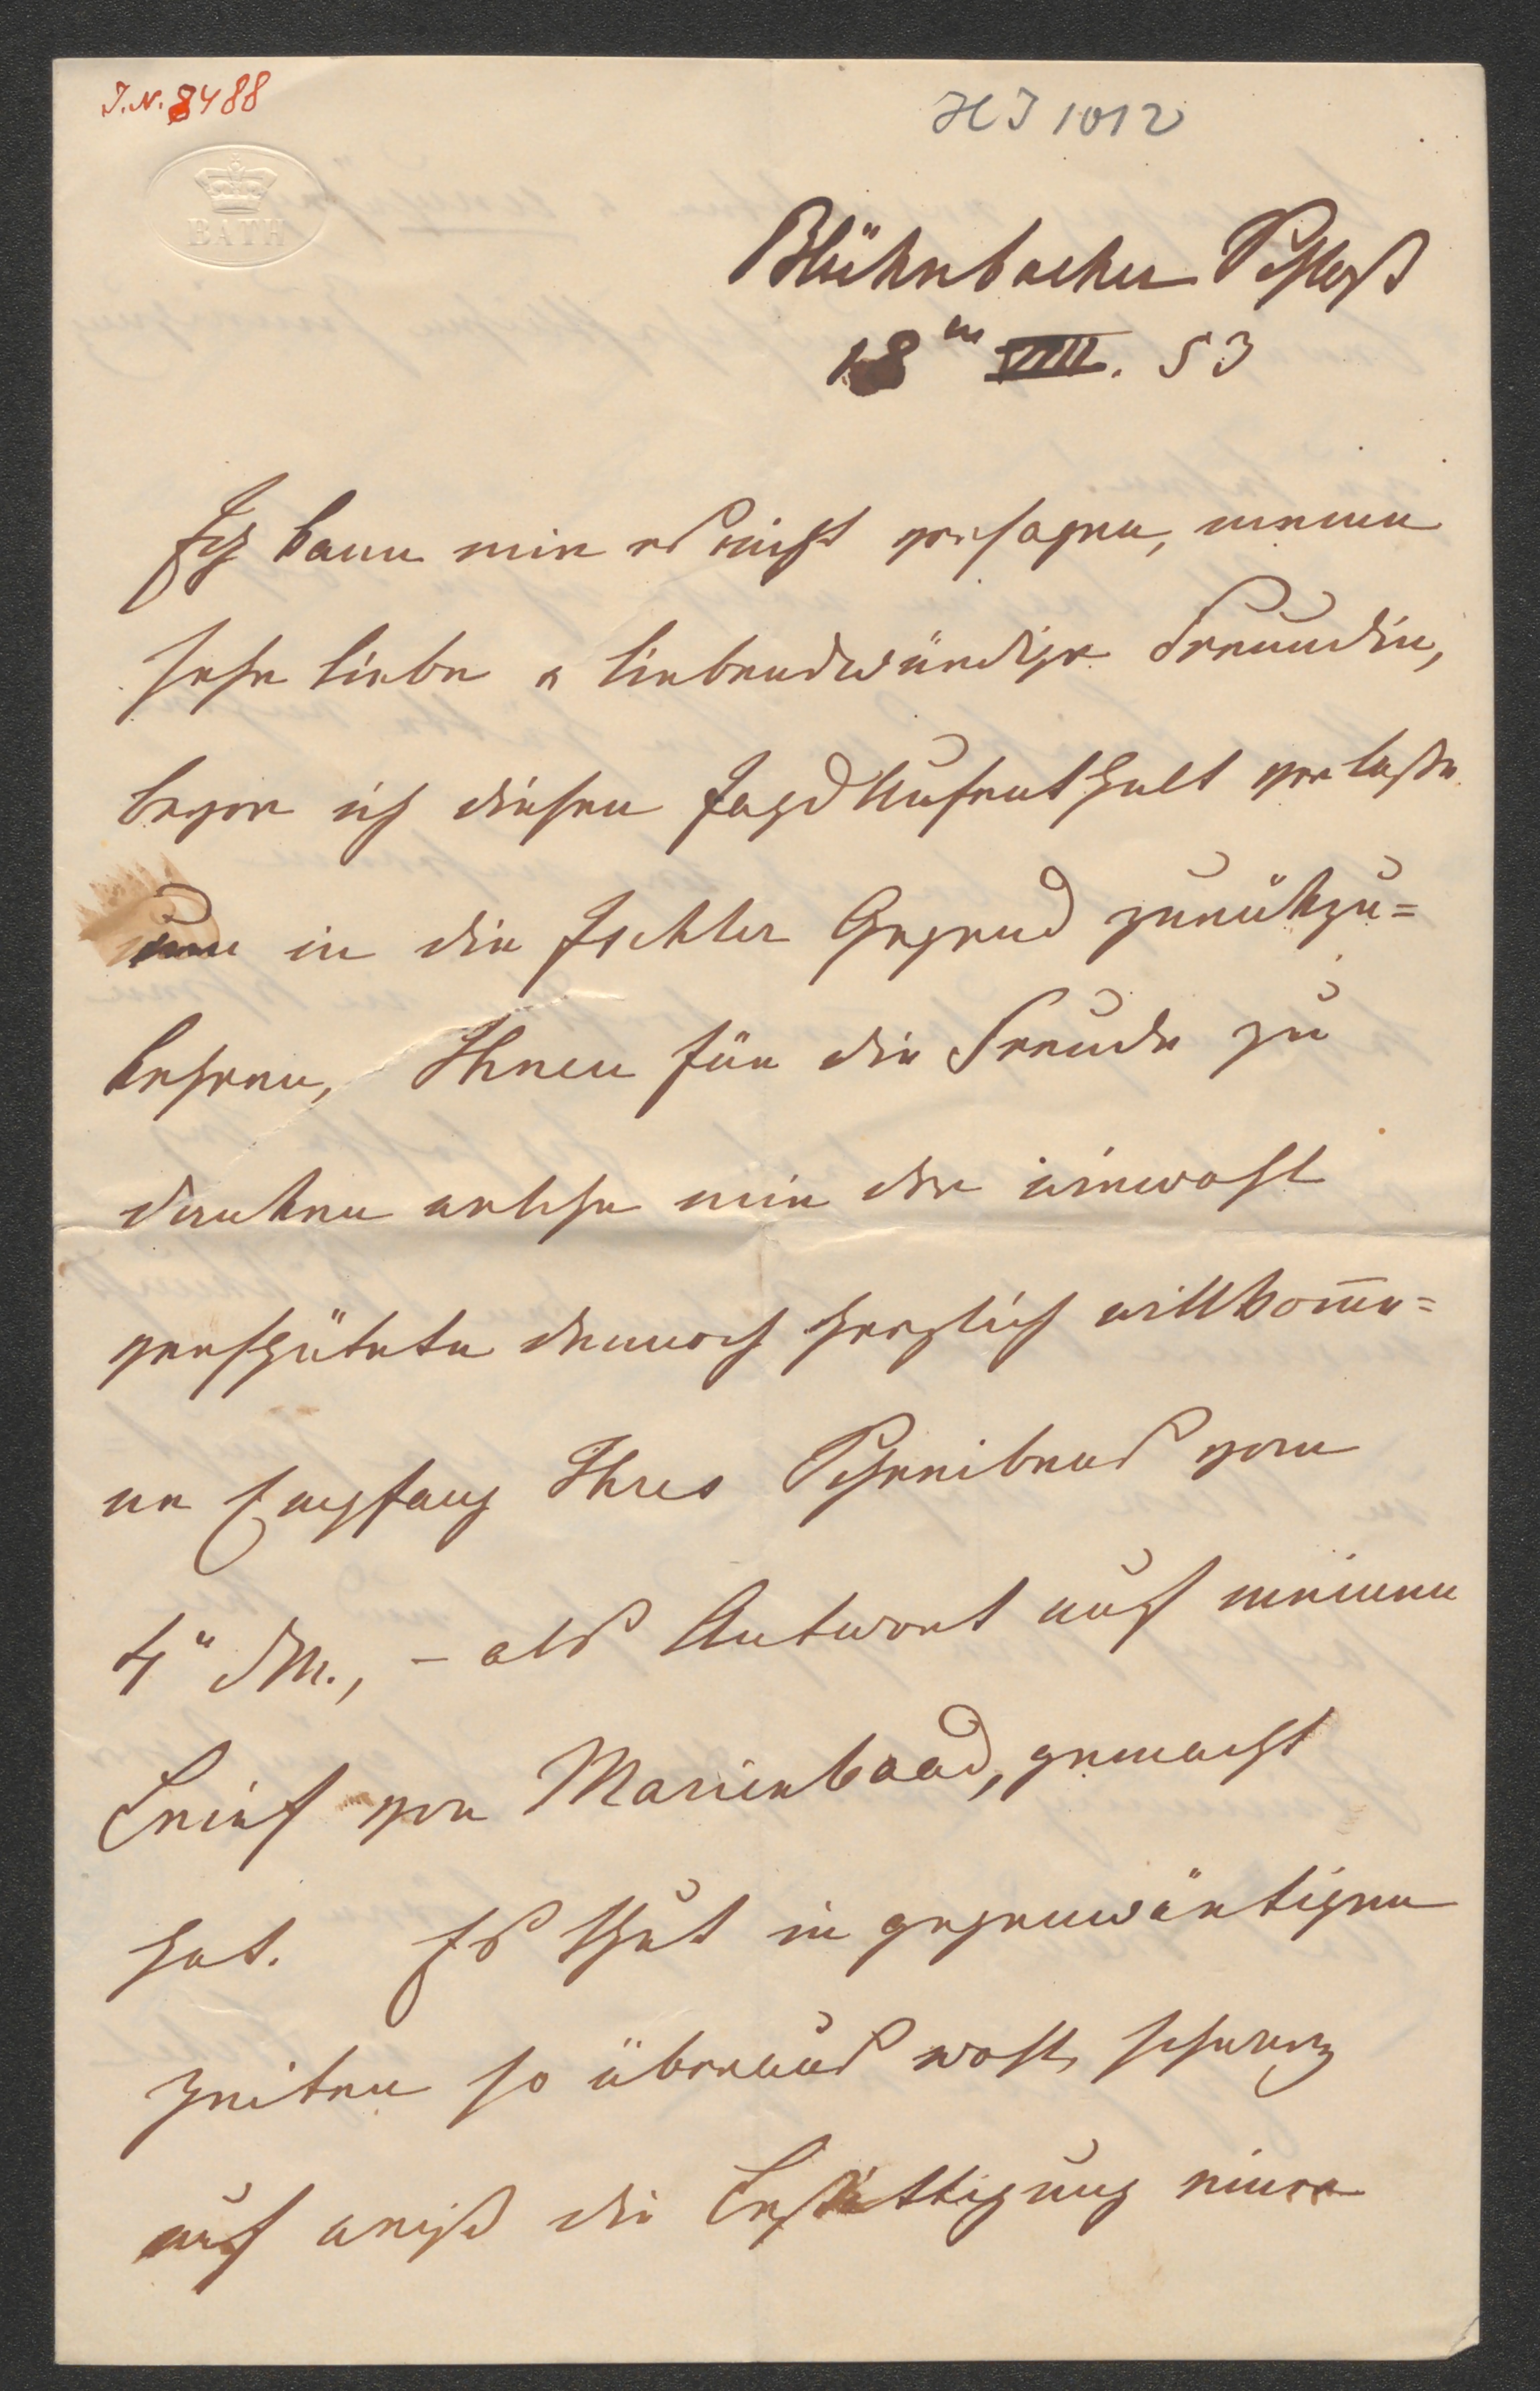 I.N. 8488
HI 1012
BATH
Blühnbacher Schloß
18ⁿ VIII. 53
Ich kann mir es nicht versagen, meine
sehr liebe & liebenswürdige Freundin,
bevor ich diesen Jagd Aufenthalt verlaße
um in die Ischler Gegend zurükzu=
kehren, Ihnen für die Freude zu
danken welche mir der
verspätete dennoch herzlich willkom̅e=
ne Empfang Ihres Schreibens vom
4ⁿ d.M., – als Antwort auf meinen
Brief von Marienbaad, gemacht
hat. Es thut in gegenwärtigen
Zeiten so überaus wohl,
auf weiß die Bestättigung einer